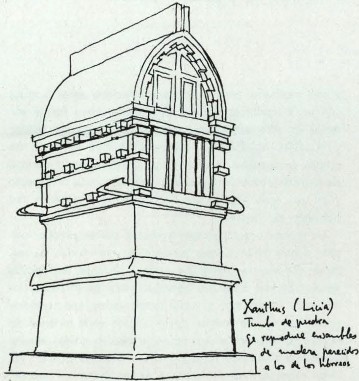 Xanthus (Licia)
Tumba de piedra
Se reproduce ensambles
de madera parecidos
a los de los hórreos